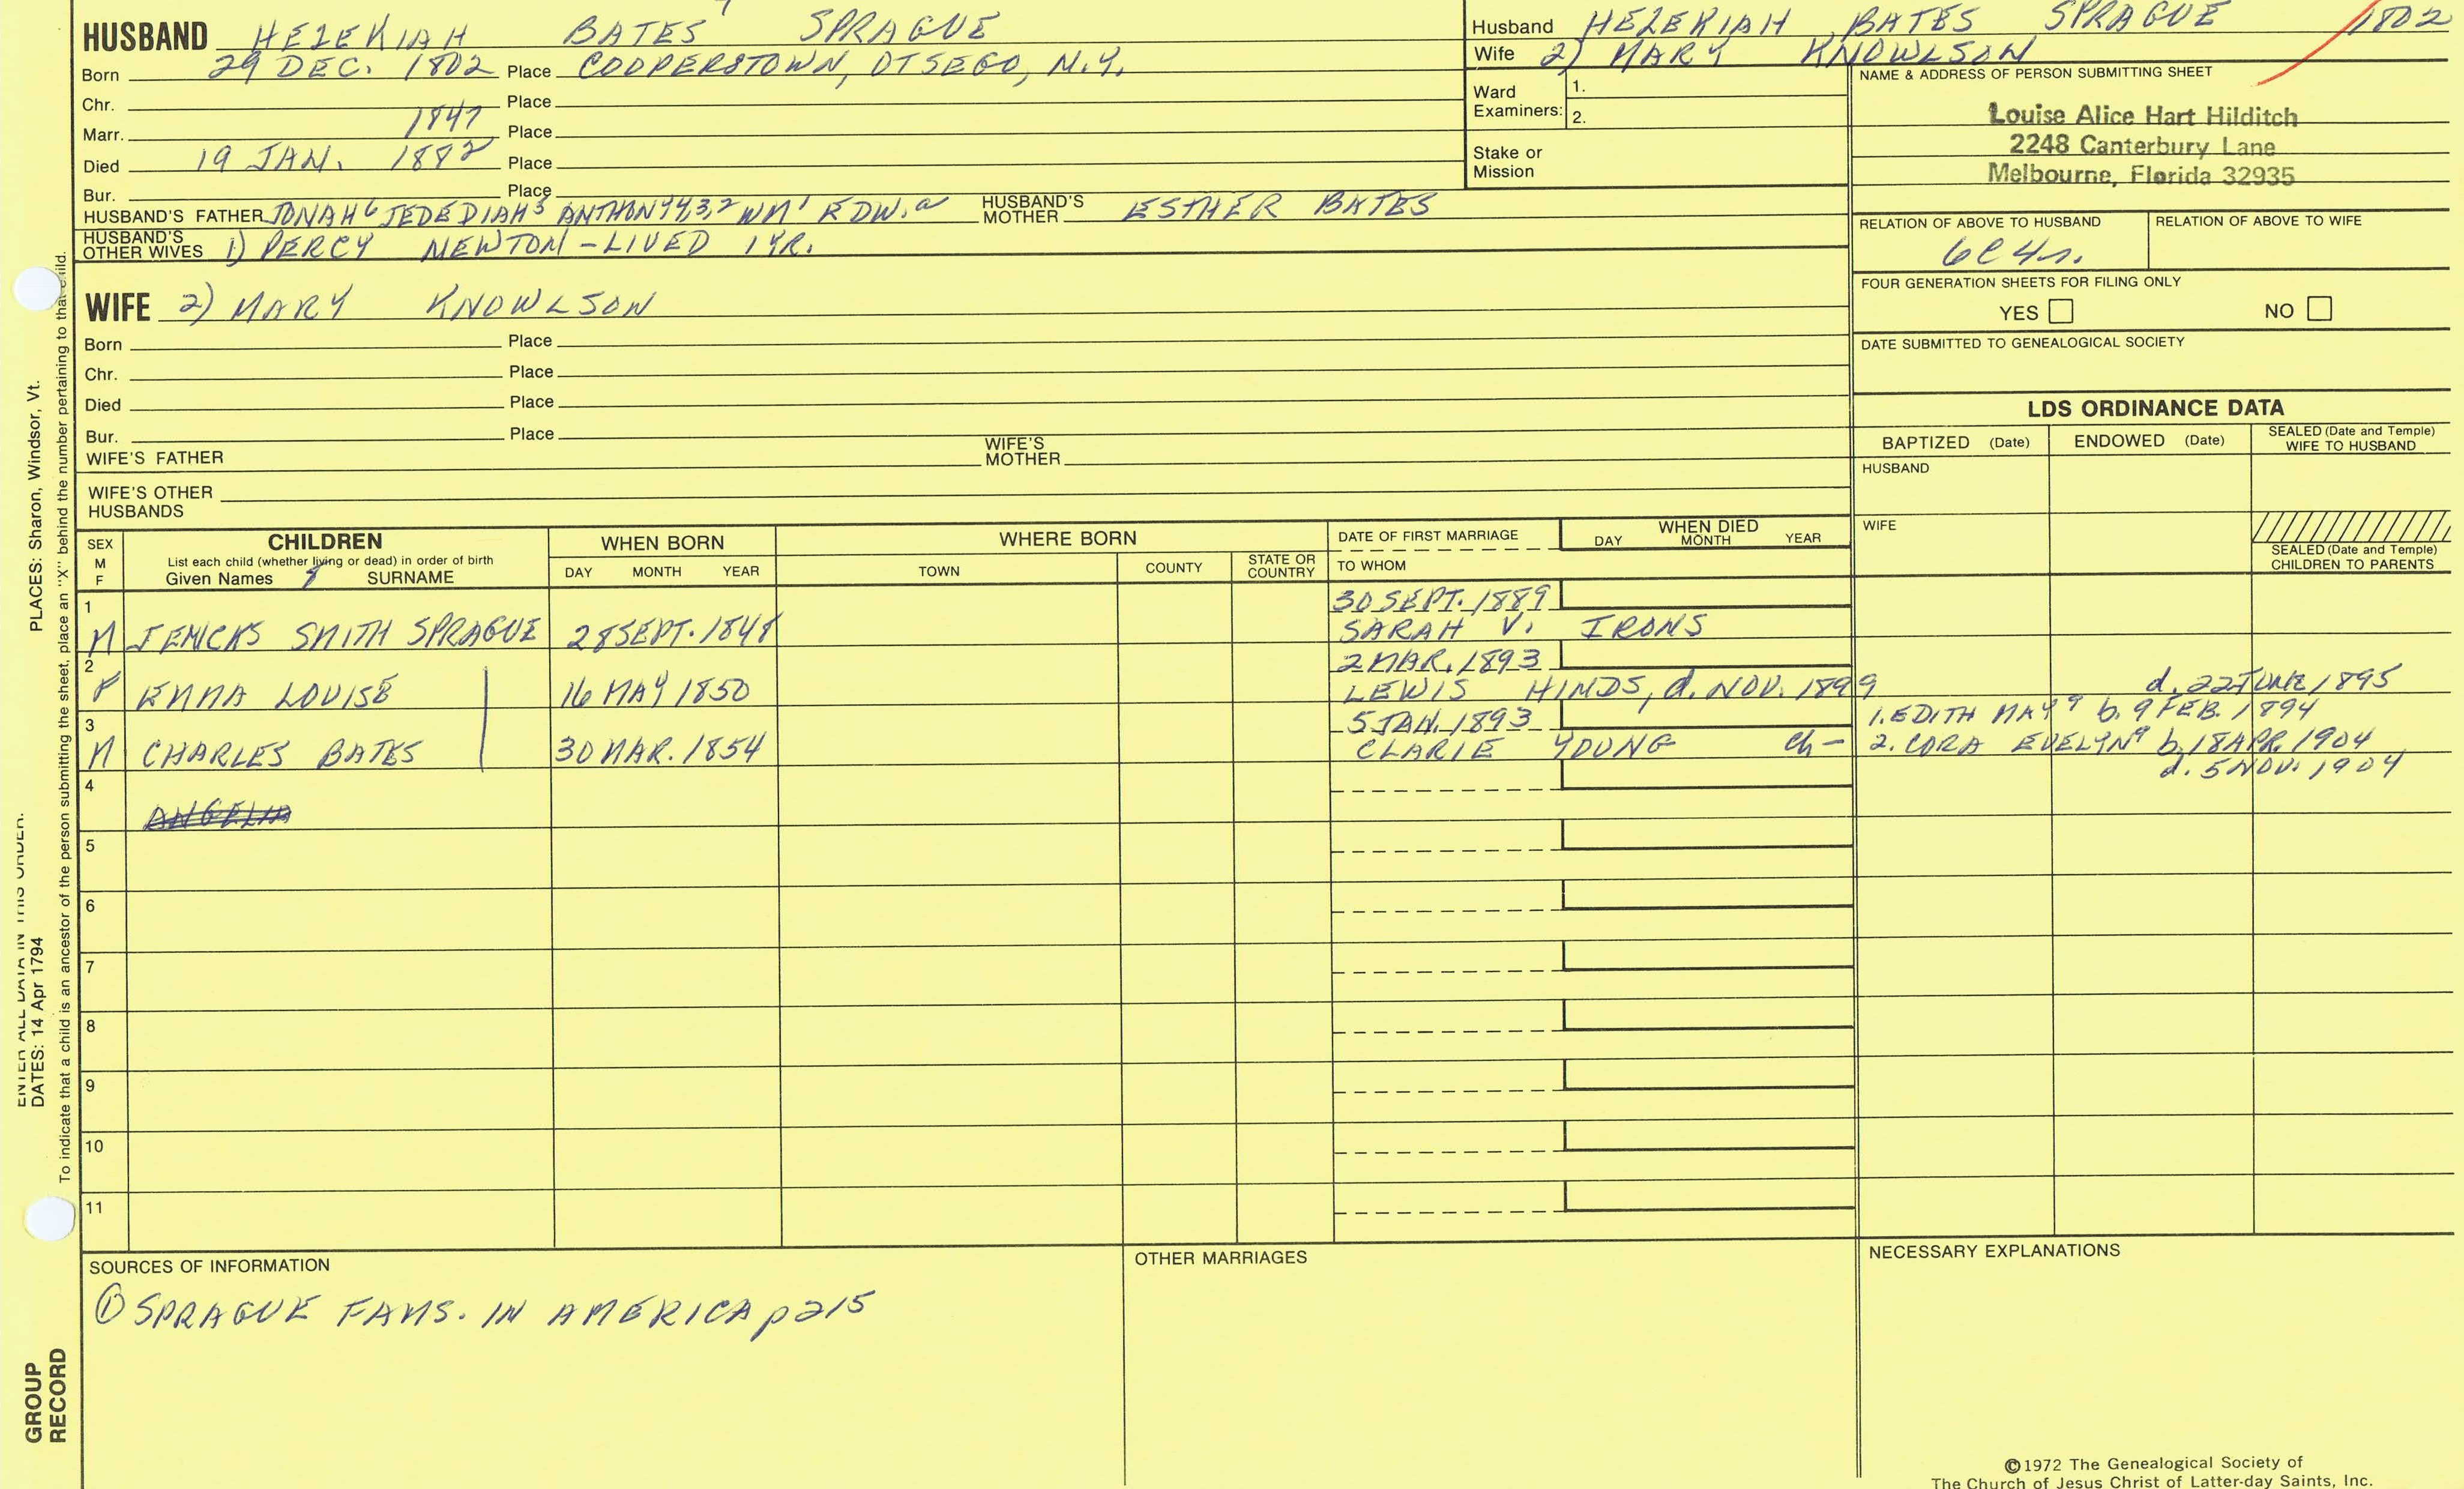 HUSBAND HEZEKIAH BATES 7 SPRAGUE
Born 29 DEC. 1802 Place COOPERSTOWN, OTSEGO, N.Y.
Chr. Place
Marr. 1847 Place
Died 19 JAN. 1882 Place
Bur. Place
HUSBAND'S FATHER JONAH6 JEDEDIAH5 ANTHONY4,3,2 WM1 EDW.a HUSBAND'S MOTHER ESTHER BATES
HUSBAND'S OTHER WIVES 1) PERCY NEWTON - LIVED 1 YR.
Husband HEZEKIAH BATES SPRAGUE 1802
Wife 2) MARY KNOWLSON
Ward Examiners: 1.
2.
Stake or Mission
NAME & ADDRESS OF PERSON SUBMITTING SHEET
Louise Alice Hart Hilditch
2248 Canterbury Lane
Melbourne, Florida 32935
RELATION OF ABOVE TO HUSBAND RELATION OF ABOVE TO WIFE
6C4r.
FOUR GENERATION SHEETS FOR FILING ONLY
YES NO
DATE SUBMITTED TO GENEALOGICAL SOCIETY
WIFE 2) MARY KNOWLSON
Born Place
Chr. Place
Died Place
Bur. Place
WIFE'S FATHER WIFE'S MOTHER
WIFE'S OTHER HUSBANDS
LDS ORDINANCE DATA
BAPTIZED (Date) ENDOWED (Date) SEALED (Date and Temple) WIFE TO HUSBAND
HUSBAND
WIFE
SEALED (Date and Temple) CHILDREN TO PARENTS
SEX M F CHILDREN WHEN BORN WHERE BORN DATE OF FIRST MARRIAGE WHEN DIED
List each child (whether living or dead) in order of birth
Given Names 8 SURNAME DAY MONTH YEAR TOWN COUNTY STATE OR COUNTRY TO WHOM DAY MONTH YEAR
1 30 SEPT. 1889
M JENCKS SMITH SPRAGUE 28 SEPT. 1848 SARAH V. IRONS
2 2 MAR. 1893
F EMMA LOUISE 16 MAY 1850 LEWIS HINDS, d. NOV. 1899 d. 22 JUNE 1895
3 5 JAN. 1893 1. EDITH MAY9 b. 9 FEB. 1894
M CHARLES BATES 30 MAR. 1854 CLARIE YOUNG ch- 2. CORA EVELYN9 b. 18 APR. 1904
d. 5 NOV. 1904
4
ANGELIA
5
6
7
8
9
10
11
SOURCES OF INFORMATION OTHER MARRIAGES NECESSARY EXPLANATIONS
① SPRAGUE FAMS. IN AMERICA p 215
©1972 The Genealogical Society of
The Church of Jesus Christ of Latter-day Saints, Inc.
ENTER ALL DATA IN THIS ORDER:
DATES: 14 Apr 1794 PLACES: Sharon, Windsor, Vt.
To indicate that a child is an ancestor of the person submitting the sheet, place an "X" behind the number pertaining to that child.
GROUP
RECORD